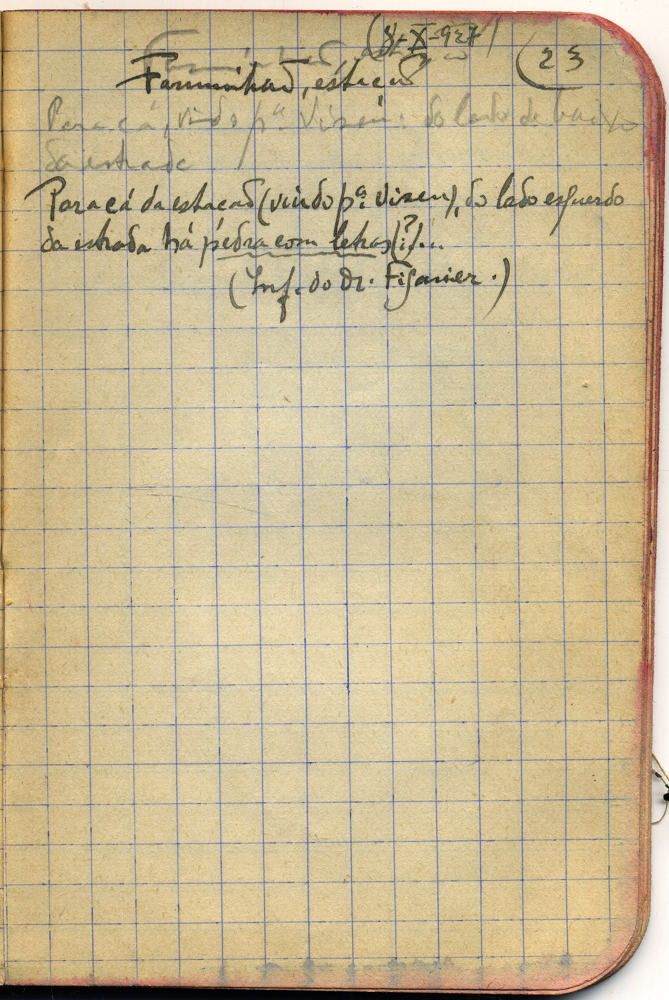 (3-X-927)
(23
Farminhaõ, estacaõ
Para cá, vindo pª. Viseu: do lado de baixo
da estrada
Para cá da estacaõ (vindo pª. Viseu), do lado esquerdo
da estrada há pedra com letras(?)...
(Inf. do Dr. Figanier.)